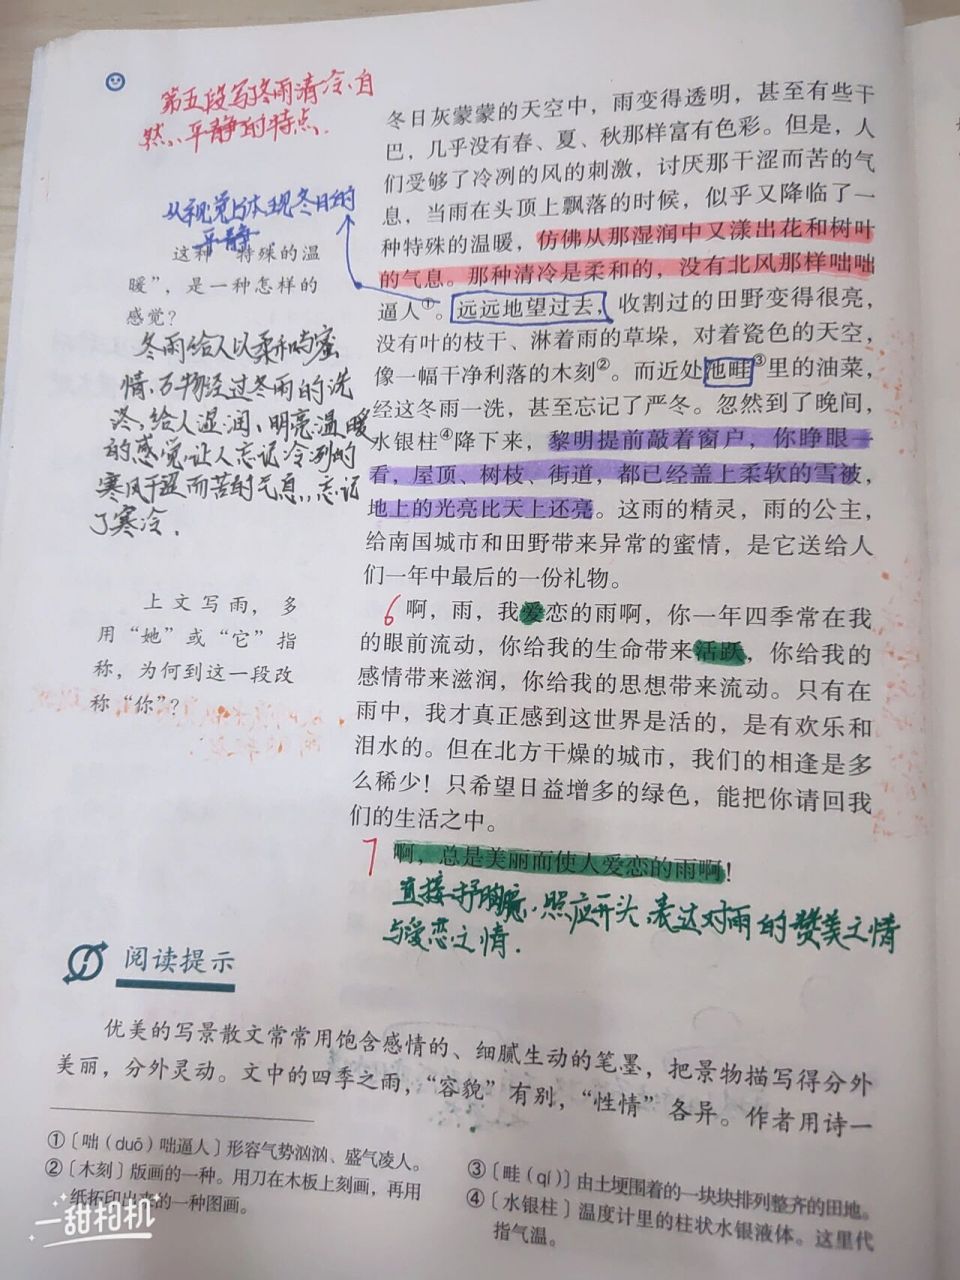 第五段写冬雨清冷、自
然、平静的特点.
从视觉上体现冬日的
平静
这种“特殊的温
暖”，是一种怎样的
感觉？
冬雨给人以柔和与蜜
情,万物经过冬雨的洗
涤,给人湿润、明亮温暖
的感觉,让人忘记冷冽的
寒风干涩而苦的气息,忘记
了寒冷.
上文写雨，多
用“她”或“它”指
称，为何到这一段改
称“你”？
冬日灰蒙蒙的天空中，雨变得透明，甚至有些干
巴，几乎没有春、夏、秋那样富有色彩。但是，人
们受够了冷冽的风的刺激，讨厌那干涩而苦的气
息，当雨在头顶上飘落的时候，似乎又降临了一
种特殊的温暖，仿佛从那湿润中又漾出花和树叶
的气息。那种清冷是柔和的，没有北风那样咄咄
逼人①。远远地望过去，收割过的田野变得很亮，
没有叶的枝干、淋着雨的草垛，对着瓷色的天空，
像一幅干净利落的木刻②。而近处池畦③里的油菜，
经这冬雨一洗，甚至忘记了严冬。忽然到了晚间，
水银柱④降下来，黎明提前敲着窗户，你睁眼一
看，屋顶、树枝、街道，都已经盖上柔软的雪被，
地上的光亮比天上还亮。这雨的精灵，雨的公主，
给南国城市和田野带来异常的蜜情，是它送给人
们一年中最后的一份礼物。
6 啊，雨，我爱恋的雨啊，你一年四季常在我
的眼前流动，你给我的生命带来活跃，你给我的
感情带来滋润，你给我的思想带来流动。只有在
雨中，我才真正感到这世界是活的，是有欢乐和
泪水的。但在北方干燥的城市，我们的相逢是多
么稀少！只希望日益增多的绿色，能把你请回我
们的生活之中。
7 啊，总是美丽而使人爱恋的雨啊！
直接抒胸臆,照应开头,表达对雨的赞美之情
与爱恋之情.
阅读提示
优美的写景散文常常用饱含感情的、细腻生动的笔墨，把景物描写得分外
美丽，分外灵动。文中的四季之雨，“容貌”有别，“性情”各异。作者用诗一
①〔咄（duō）咄逼人〕形容气势汹汹、盛气凌人。
②〔木刻〕版画的一种。用刀在木板上刻画，再用
纸拓印出来的一种图画。
③〔畦（qí）〕由土埂围着的一块块排列整齐的田地。
④〔水银柱〕温度计里的柱状水银液体。这里代
指气温。
一甜相机